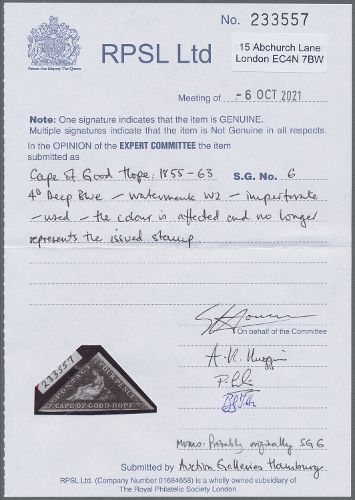 No. 233557
RPSL Ltd
15 Abchurch Lane
London EC4N 7BW
Meeting of -6 OCT 2021
Note: One signature indicates that the item is GENUINE.
Multiple signatures indicate that the item is Not Genuine in all respects.
In the OPINION of the EXPERT COMMITTEE the item
submitted as
Cape of Good Hope: 1855-63 S.G. No. 6
4d Deep Blue - Watermark W2 - imperforate
- used - the colour is affected and no longer
represents the issued stamp.
On behalf of the Committee
233557
POSTAGE FOUR PENCE
CAPE OF GOOD HOPE
MEMO: Probably originally SG 6
Submitted by Auction Galleries Hamburg
RPSL Ltd. (Company Number 01684658) is a wholly owned subsidiary of
The Royal Philatelic Society London